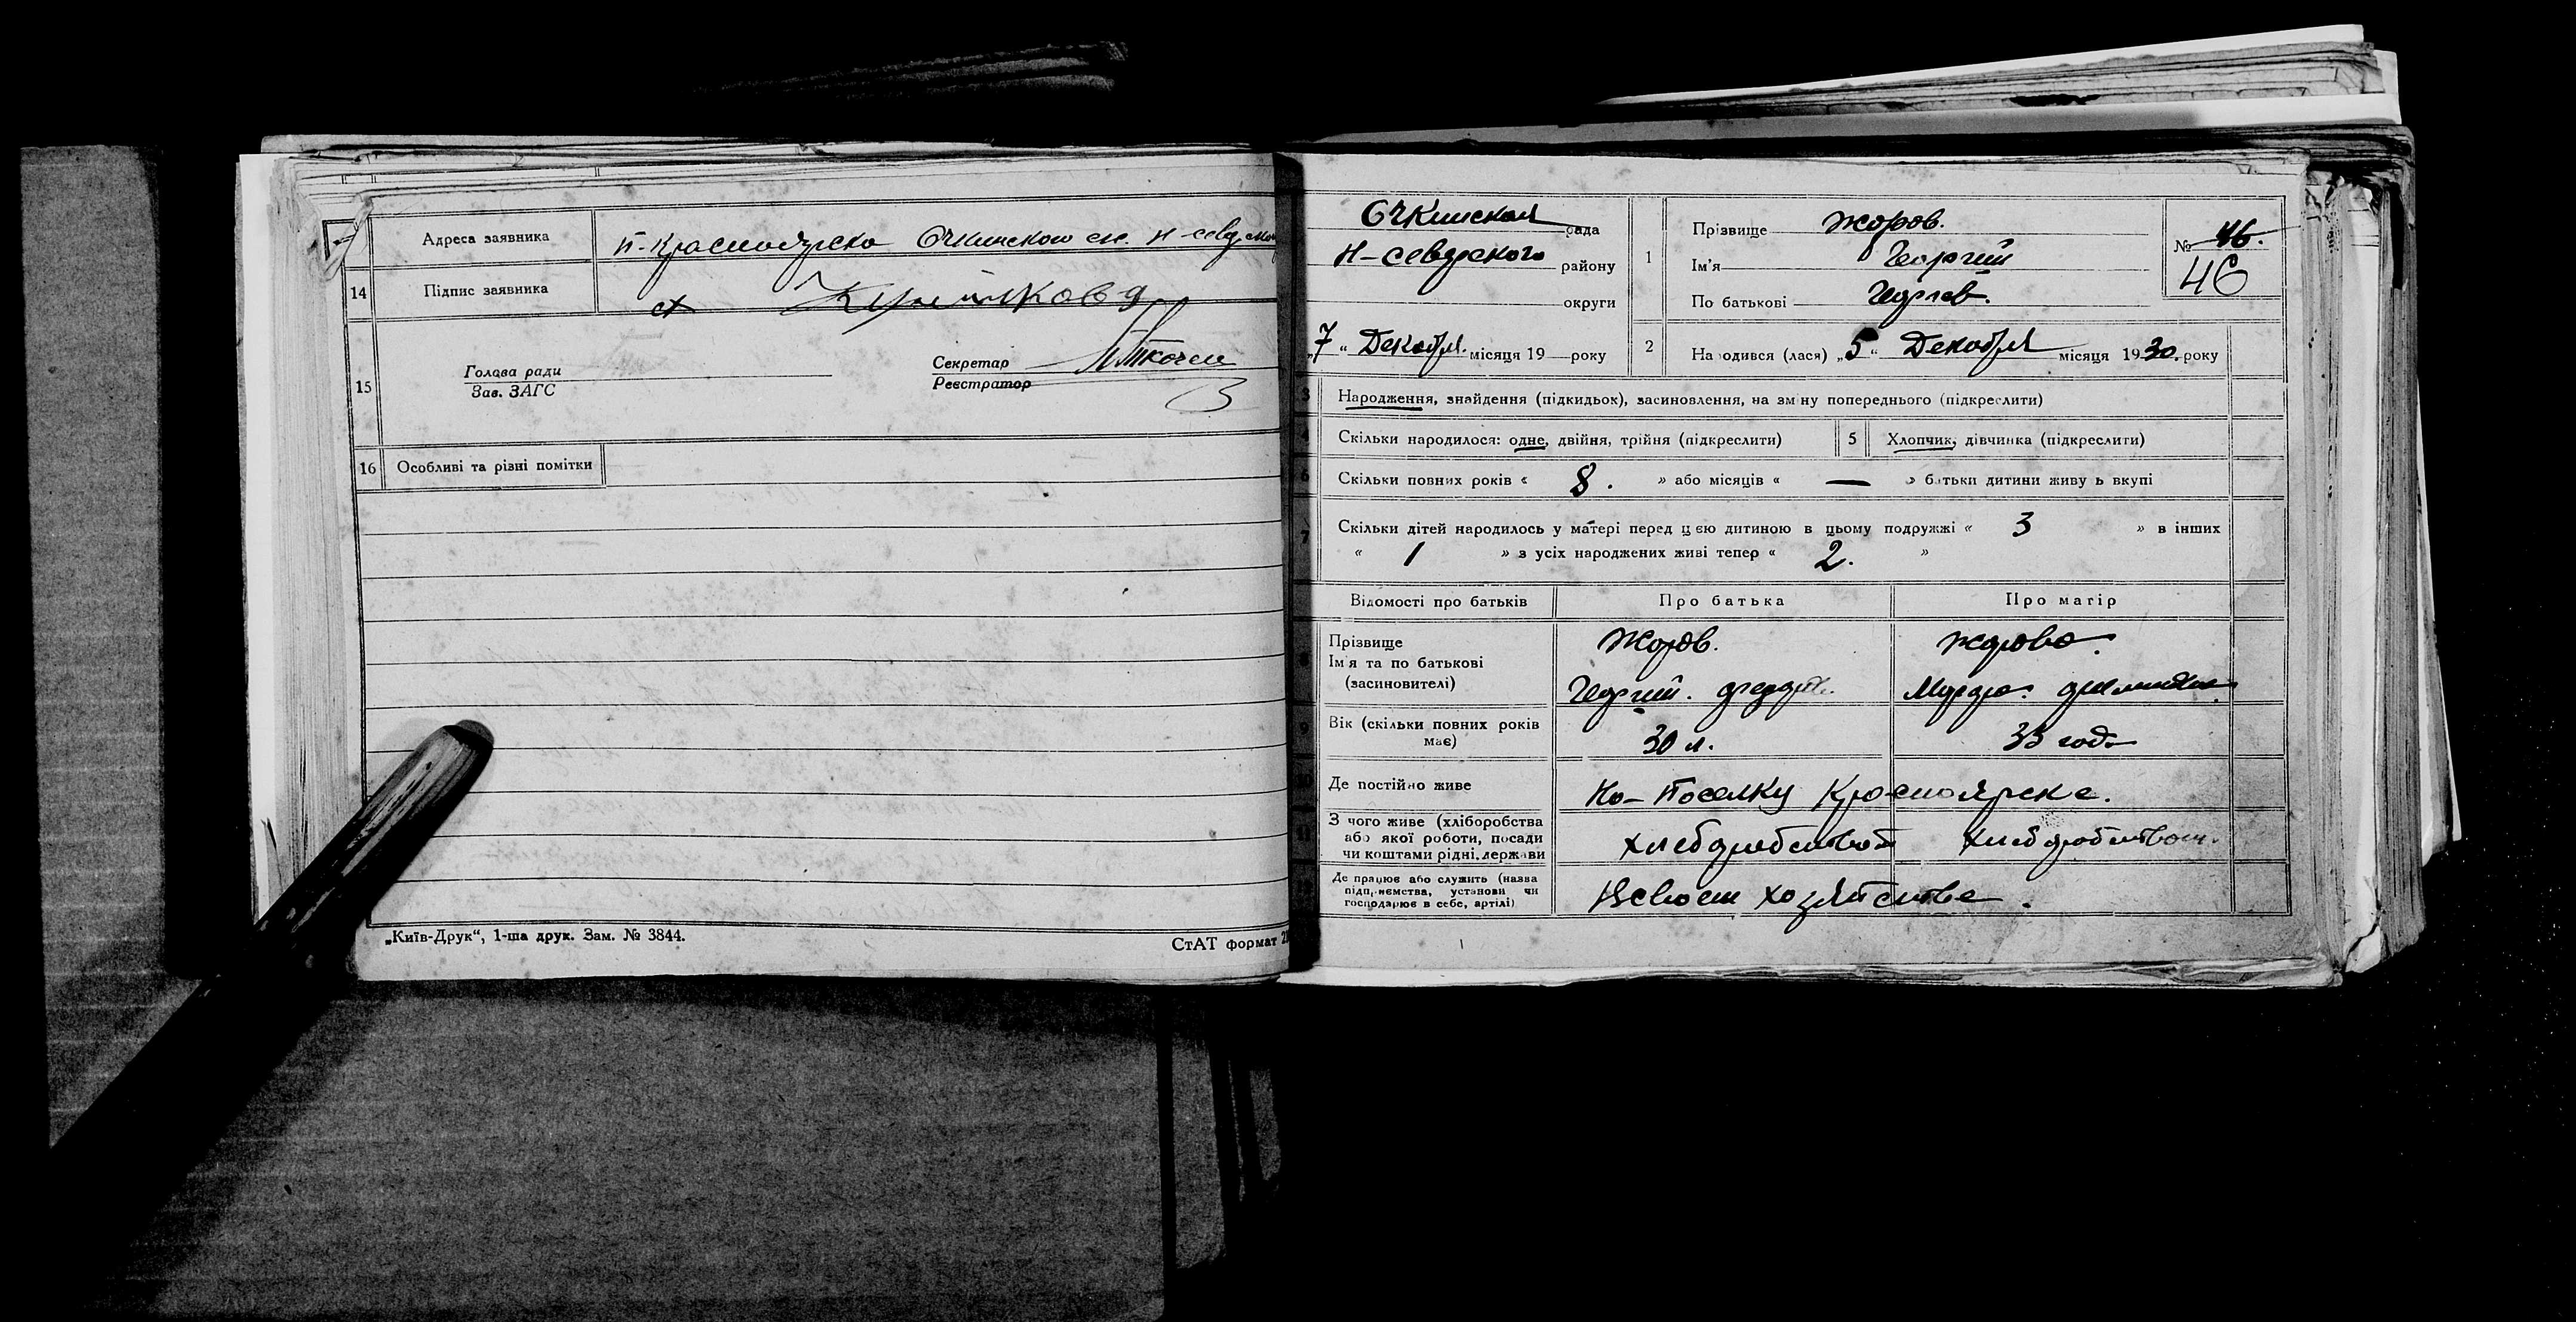 Адреса заявника п-Красноярска Очкинского с.с. Н-север
14 Підпис заявника
15 Голова ради Зав. ЗАГС
Секретар
Реєстратор
3
16 Особливі та різні помітки
„Київ-Друк“, 1-ша друк. Зам. № 3844.
СтАТ формат
Очкинская рада
Н-северского району
округи
„7“ Декабря місяця 19 року
1 Прізвище Жоров.
Ім'я Георгий
По батькові Георгиев.
№ 46.
46
2 Народився (лася) „5“ Декабря місяця 1930. року
3 Народження, знайдення (підкидьок), засиновлення, на зміну попереднього (підкреслити)
Скільки народилося: одне, двійня, трійня (підкреслити) 5 Хлопчик, дівчинка (підкреслити)
6 Скільки повних років « 8. » або місяців « — » батьки дитини живуть вкупі
7 Скільки дітей народилось у матері перед цією дитиною в цьому подружжі « 3 » в інших
« 1 » з усіх народжених живі тепер « 2. »
Відомості про батьків Про батька Про матір
Прізвище Жоров. Жорова.
Ім'я та по батькові
(засиновителі) Георгий.
9 Вік (скільки повних років має) 30 л. 33 года
Де постійно живе На-поселку Красноярске.
З чого живе (хліборобства
або якої роботи, посади
чи коштами рідні, держави хлеборобством хлеборобством.
Де працює або служить (назва
підприємства, установи чи
господарює в себе, артілі) В своем хозяйстве.